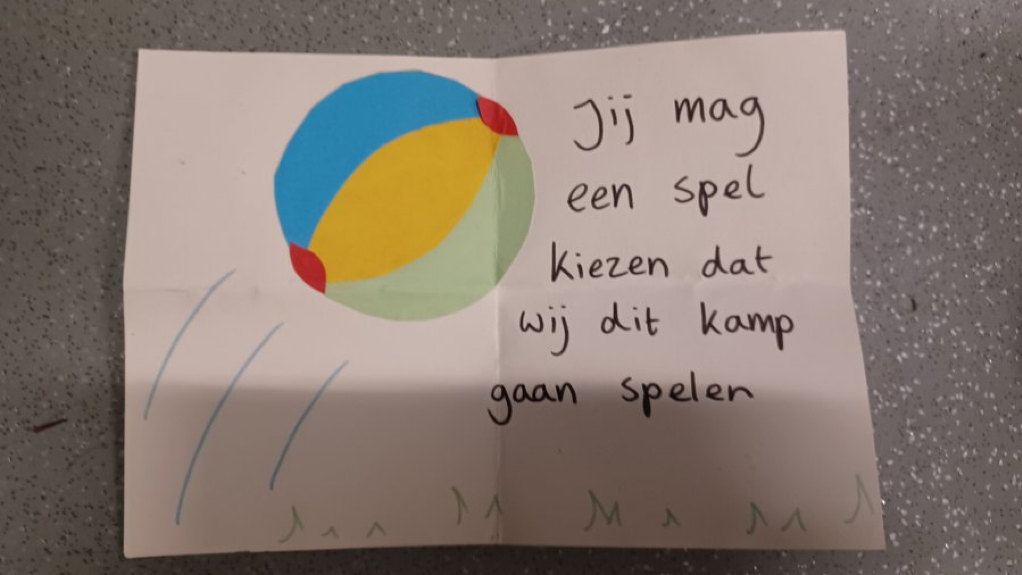 Jij mag
een spel
kiezen dat
wij dit kamp
gaan spelen